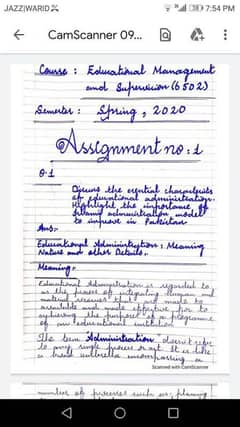 JAZZ|WARID
7:54 PM
CamScanner 09...
Course : Educational Management
and Supervision (6502)
Semester : Spring, 2020
Assignment no : 1
Q.1
Discuss the essential
of educational administration.
Highlight the importance of
administration model
to improve in Pakistan
Ans:-
Educational Administration : Meaning
Nature and other Details.
Meaning:-
Educational Administration is regarded to
as the process of integrating human and
material that are made to
available and made effective for to
achieving the purposes of a programme
of an educational institution
The term "Administration" doesn't refer
to any single process or act. It is like
a broad umbrella encompassing a
Scanned with CamScanner
number of processes such as: planning